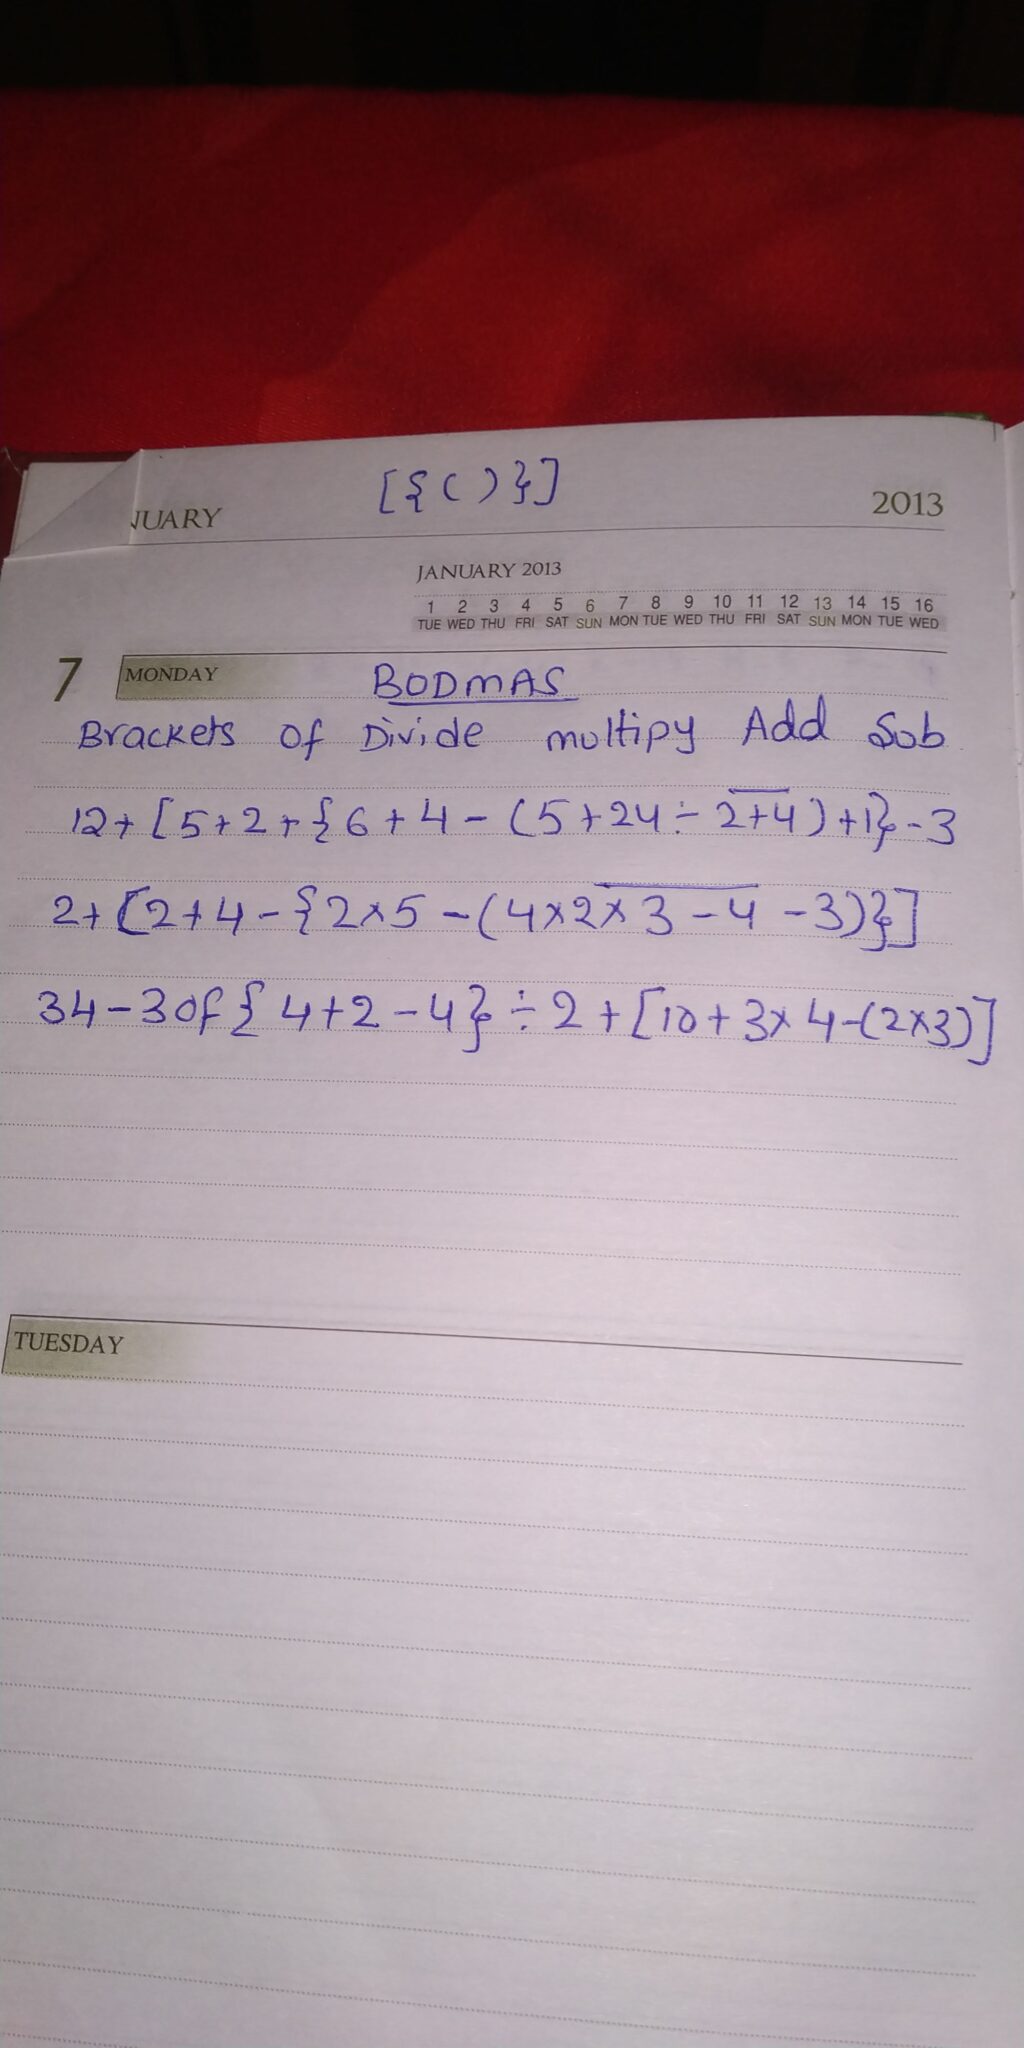 [{()}]
NUARY 2013
JANUARY 2013
1 2 3 4 5 6 7 8 9 10 11 12 13 14 15 16
TUE WED THU FRI SAT SUN MON TUE WED THU FRI SAT SUN MON TUE WED
7 MONDAY BODMAS
Brackets of Divide multipy Add Sub
12+[5+2+{6+4-(5+24÷2̅+̅4̅)+1}-3
2+[2+4-{2×5-(4×2̅×̅3̅-̅4̅-3)}]
34-3of{4+2-4}÷2+[10+3×4-(2×3)]
TUESDAY